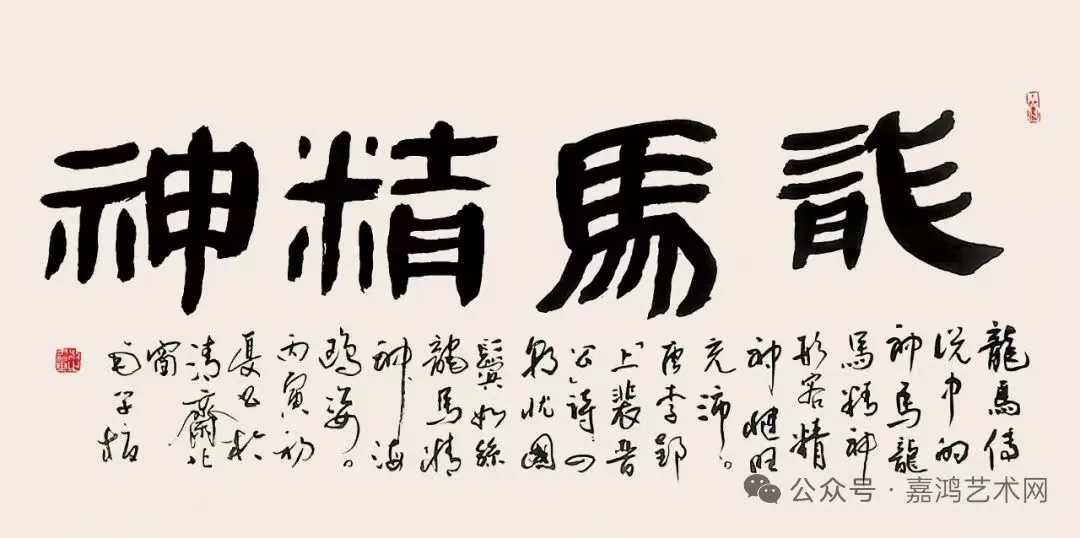 龍馬精神
龍馬傳
说中的
神馬龍
馬精神
形容精
神健旺
充沛。
唐李郢
上裴晋
公詩：四
朝忧國
鬓如絲
龍馬精
神海
鶴姿。
丙寅初
夏书於
清齋北
窗
公众号·嘉鸿艺术网